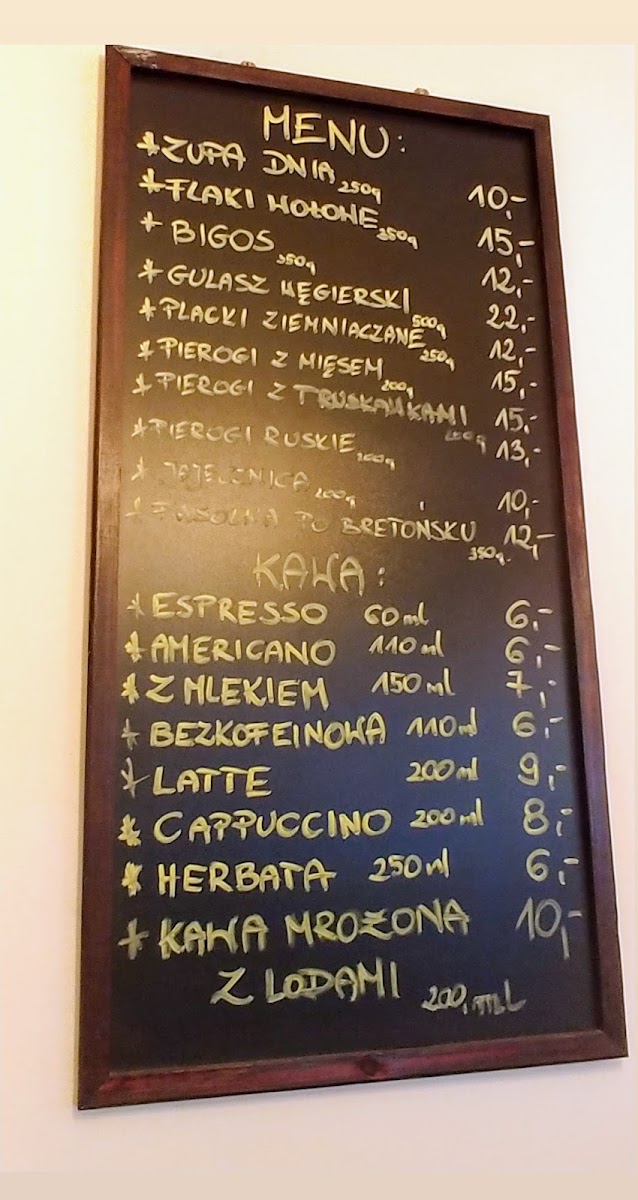 MENU:
*ZUPA DNIA 250g 10,-
*FLAKI WOŁOWE 350g 15,-
*BIGOS 350g 12,-
*GULASZ WĘGIERSKI 500g 22,-
*PLACKI ZIEMNIACZANE 250g 12,-
*PIEROGI Z MIĘSEM 200g 15,-
*PIEROGI Z TRUSKAWKAMI 200g 15,-
*PIEROGI RUSKIE 200g 13,-
*JAJECZNICA 200g 10,-
*FASOLKA PO BRETOŃSKU 350g. 12,-
KAWA:
*ESPRESSO 60ml 6,-
*AMERICANO 110ml 6,-
*Z MLEKIEM 150ml 7,-
*BEZKOFEINOWA 110ml 6,-
*LATTE 200ml 9,-
*CAPPUCCINO 200ml 8,-
*HERBATA 250ml 6,-
*KAWA MROŻONA 10,-
Z LODAMI 200,ml